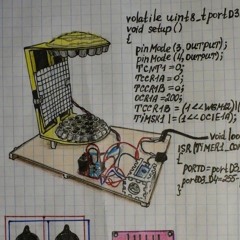 volatile uint8_t portD3
void setup()
{
pinMode(3, OUTPUT);
pinMode(4, OUTPUT);
TCNT1=0;
TCCR1A=0;
TCCR1B=0;
OCR1A=200;
TCCR1B=(1<<WGM12)|
TIMSK1|=(1<<OCIE1A);
}
void loo
ISR(TIMER1_CO
{
PORTD=portD3_
portD3_D4=255-
}